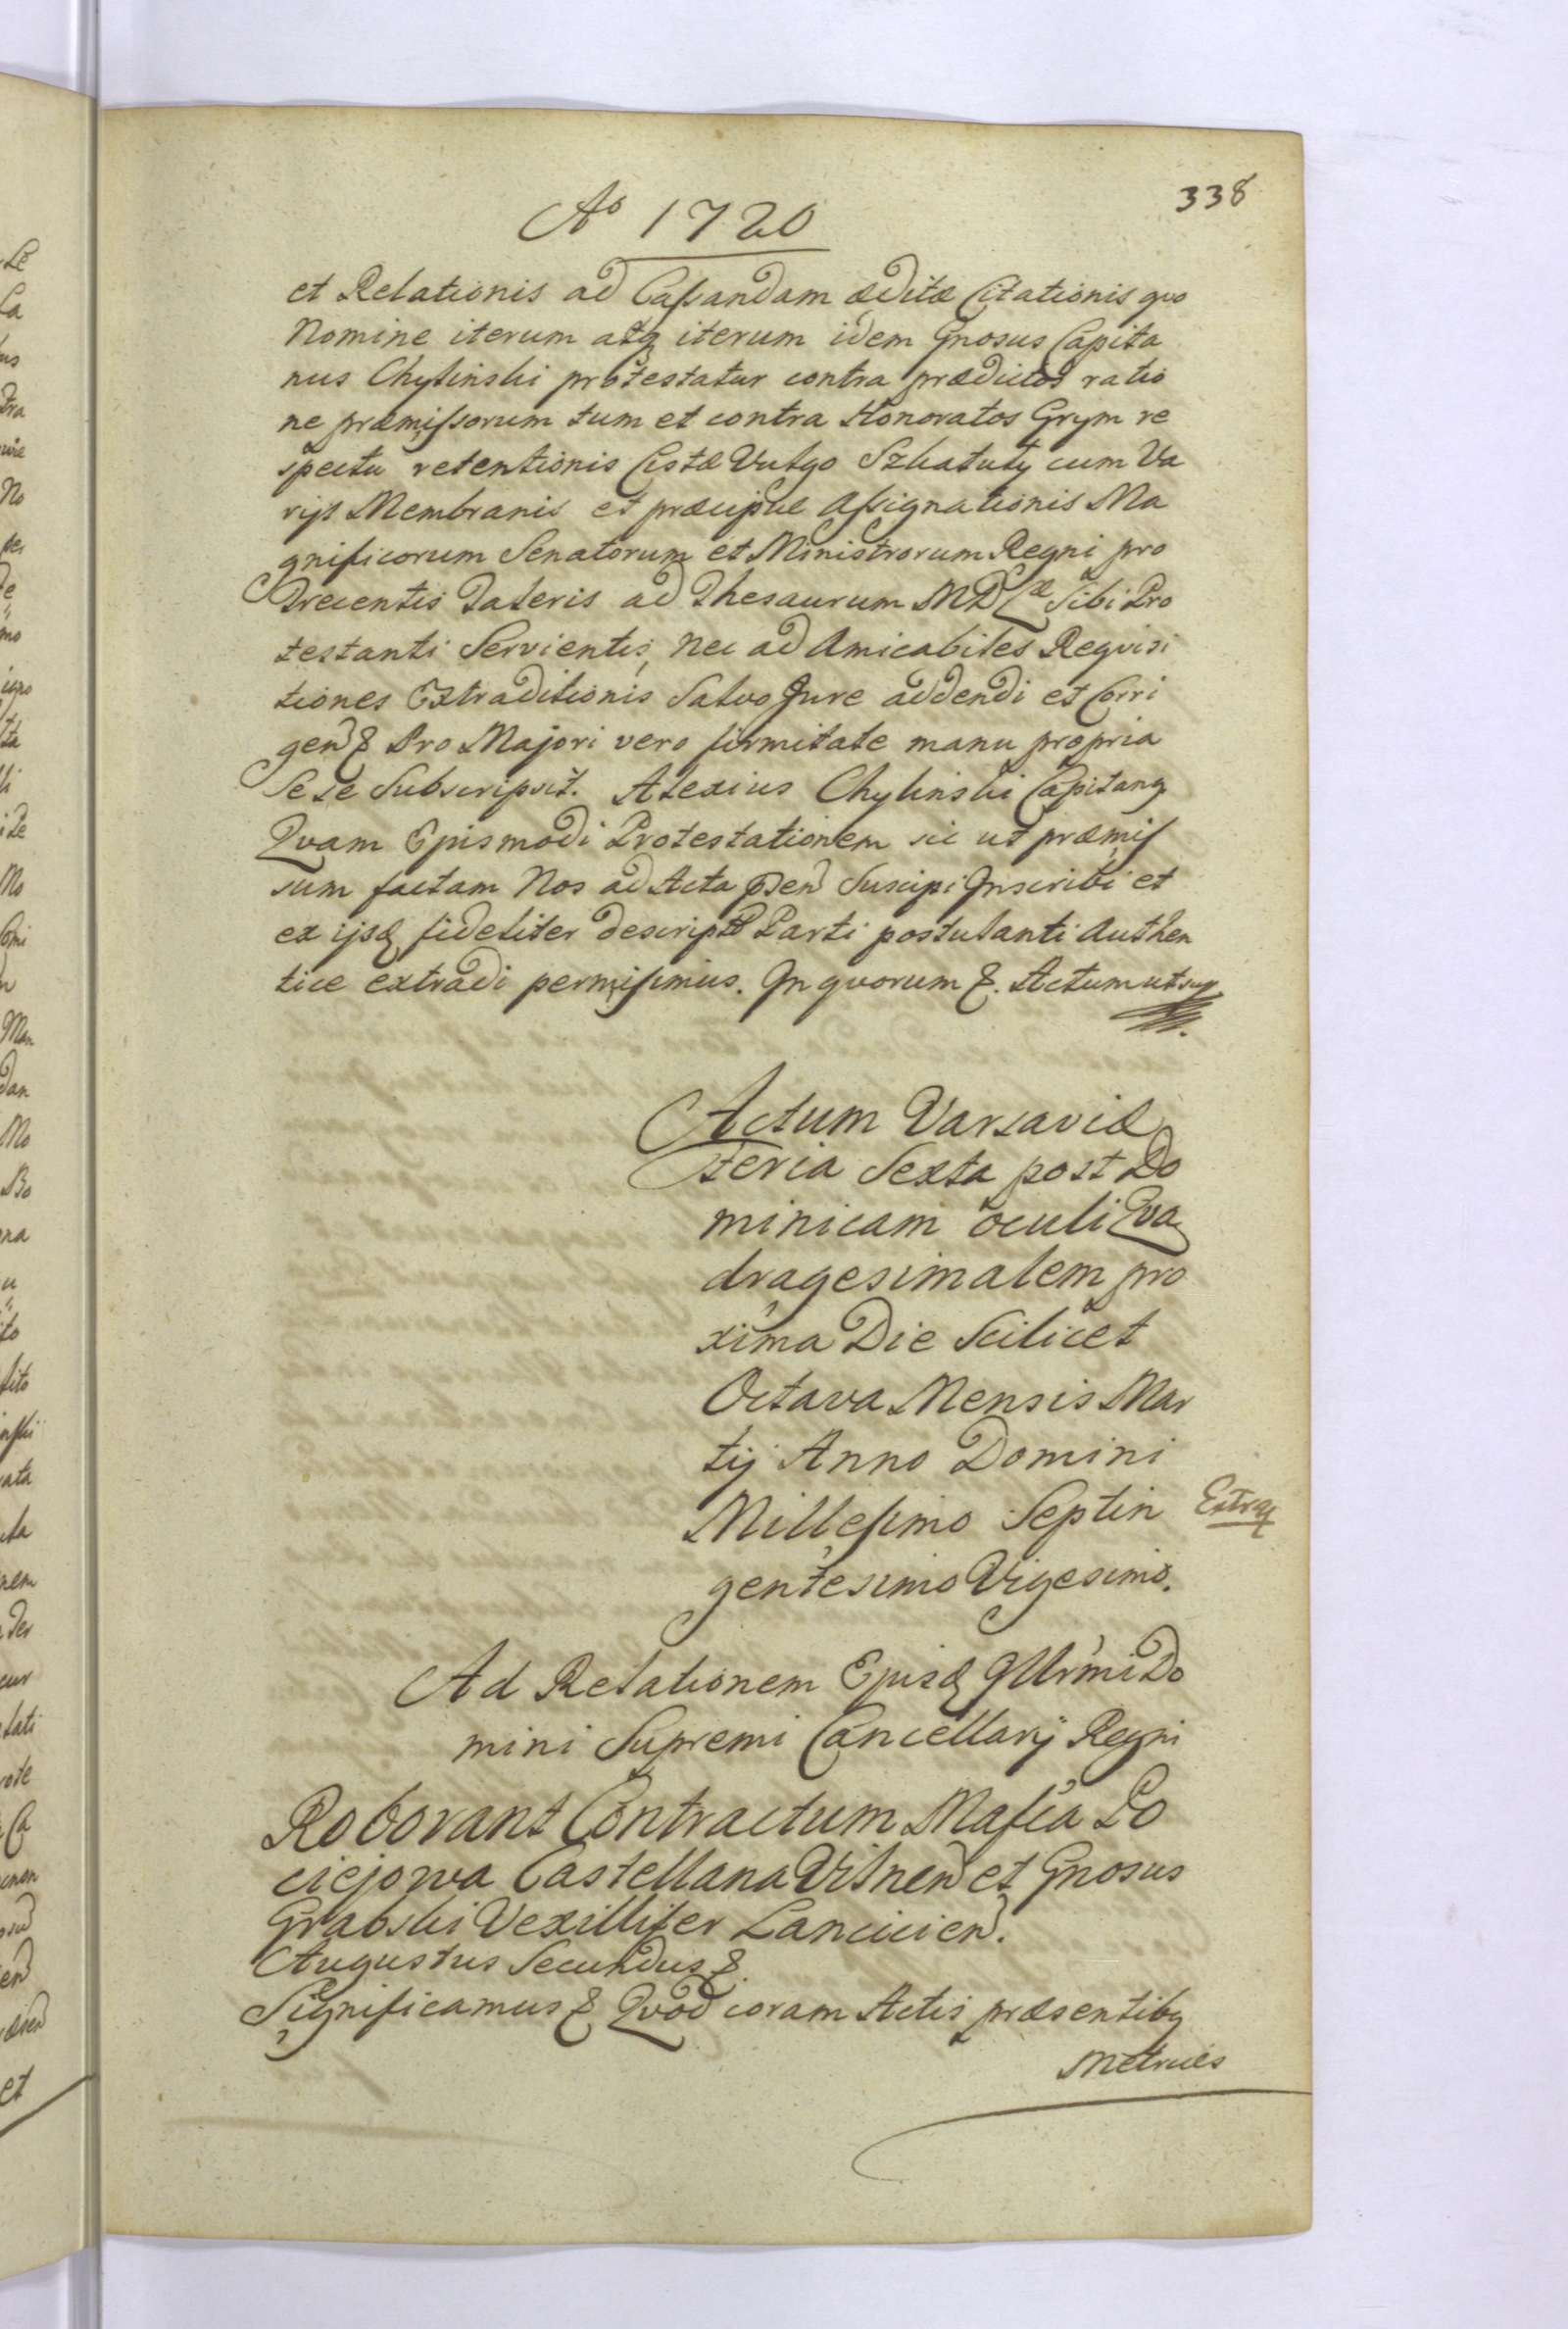 338
Aº 1720
et Relationis ad Cassandam æditæ Citationis quo
Nomine iterum atq iterum idem Gnosus Capita
nus Chylinski protestatur contra prædictos ratio
ne præmissorum tum et contra Honoratos Grym re
spectu retentionis Cistæ Vulgo Szkatuły cum Va
rijs Membranis et præcipue Assignationis Ma
gnificorum Senatorum et Ministrorum Regni pro
Trecentis Taleris ad Thesaurum MDLæ Sibi Pro
testanti Servientis, Nec ad Amicabiles Requisi
tiones Extraditionis Salvo Jure addendi et Corri
gen & Pro Majori vero firmitate manu propria
Sese Subscripsit. Alexius Chylinski Capitanq
Qvam Ejusmodi Protestationem sic ut præmis
sum factam Nos ad Acta pden Suscipi Inscribi et
ex ijsq fideliter descript Parti postulanti Authen
tice extradi permisimus. In quorum &. Actum ut sup
Actum Varsaviæ
Feria Sexta post Do
minicam oculi Qva
dragesimalem pro
xima Die Scilicet
Octava Mensis Mar
tij Anno Domini
Millesimo Septin
gentesimo Vigesimo.
Extra
Ad Relationem Ejusd Illrmi Do
mini Supremi Cancellarij Regni
Roborant Contractum Mafca Po
ciejowa Castellana Vilnen et Gnosus
Grabski Vexillifer Lancicien.
Augustus Secundus &.
Significamus & Qvod coram Actis præsentibq
Metrices